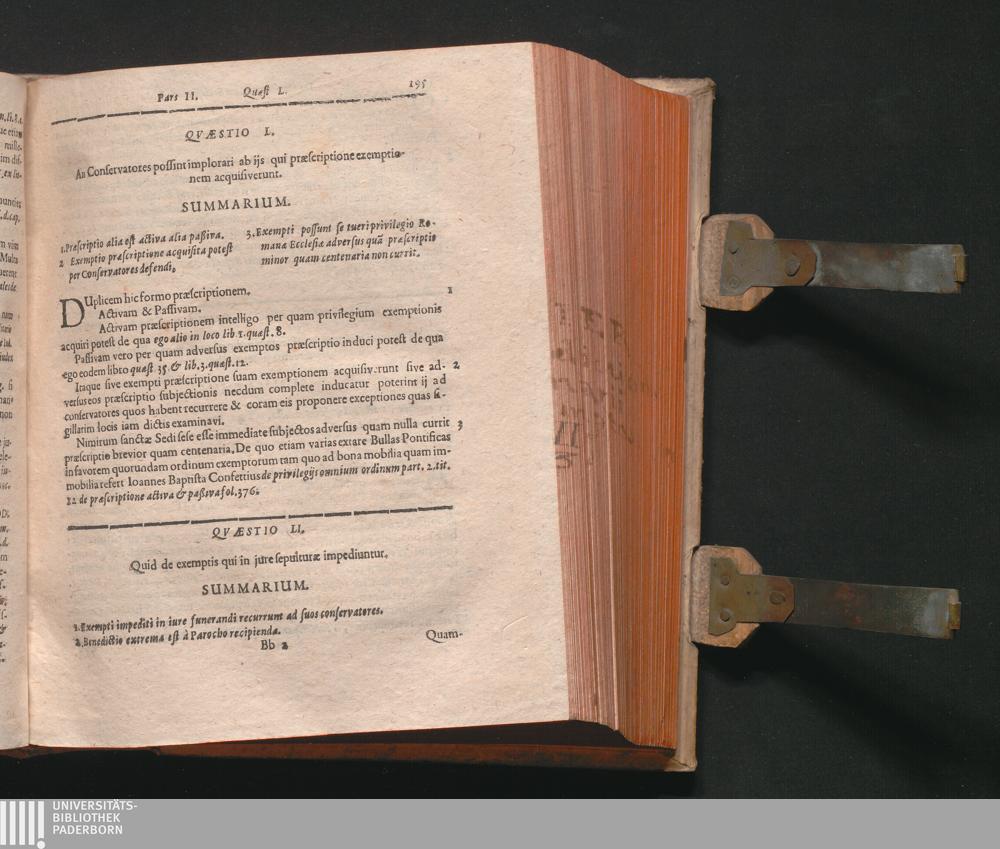 Pars II. Quæst L. 195
QVÆSTIO L.
An Conservatores possint implorari ab ijs qui præscriptione exemptio-
nem acquisiverunt.
SUMMARIUM.
1. Præscriptio alia est activa alia passiva.
2 Exemptio præscriptione acquisita potest
per Conservatores defendi.
3. Exempti possunt se tueri privilegio Ro-
mana Ecclesiæ adversus quā præscriptio
minor quam centenaria non currit.
DUplicem hic formo præscriptionem. 1
Activam & Passivam.
Activam præscriptionem intelligo per quam privilegium exemptionis
acquiri potest de qua ego alio in loco lib. 1. quæst. 8.
Passivam vero per quam adversus exemptos præscriptio induci potest de qua
ego eodem libro quæst 35 & lib. 3. quæst. 12.
Itaque sive exempti præscriptione suam exemptionem acquisiverunt sive ad- 2
versus eos præscriptio subjectionis necdum complete inducatur poterint ij ad
conservatores quos habent recurrere & coram eis proponere exceptiones quas si-
gillatim locis iam dictis examinavi.
Nimirum sanctæ Sedi sese esse immediate subjectos adversus quam nulla currit 3
præscriptio brevior quam centenaria. De quo etiam varias extare Bullas Pontificas
in favorem quorundam ordinum exemptorum tam quo ad bona mobilia quam im-
mobilia refert Ioannes Baptista Confettius de privilegijs omnium ordinum part. 2. tit.
12 de præscriptione activa & passiva fol. 376.
QVÆSTIO LI.
Quid de exemptis qui in jure sepulturæ impediuntur.
SUMMARIUM.
1. Exempti impediti in iure funerandi recurrunt ad suos conservatores.
2. Benedictio extrema est à Parocho recipienda.
Bb 2 Quam-
UNIVERSITÄTS-
BIBLIOTHEK
PADERBORN